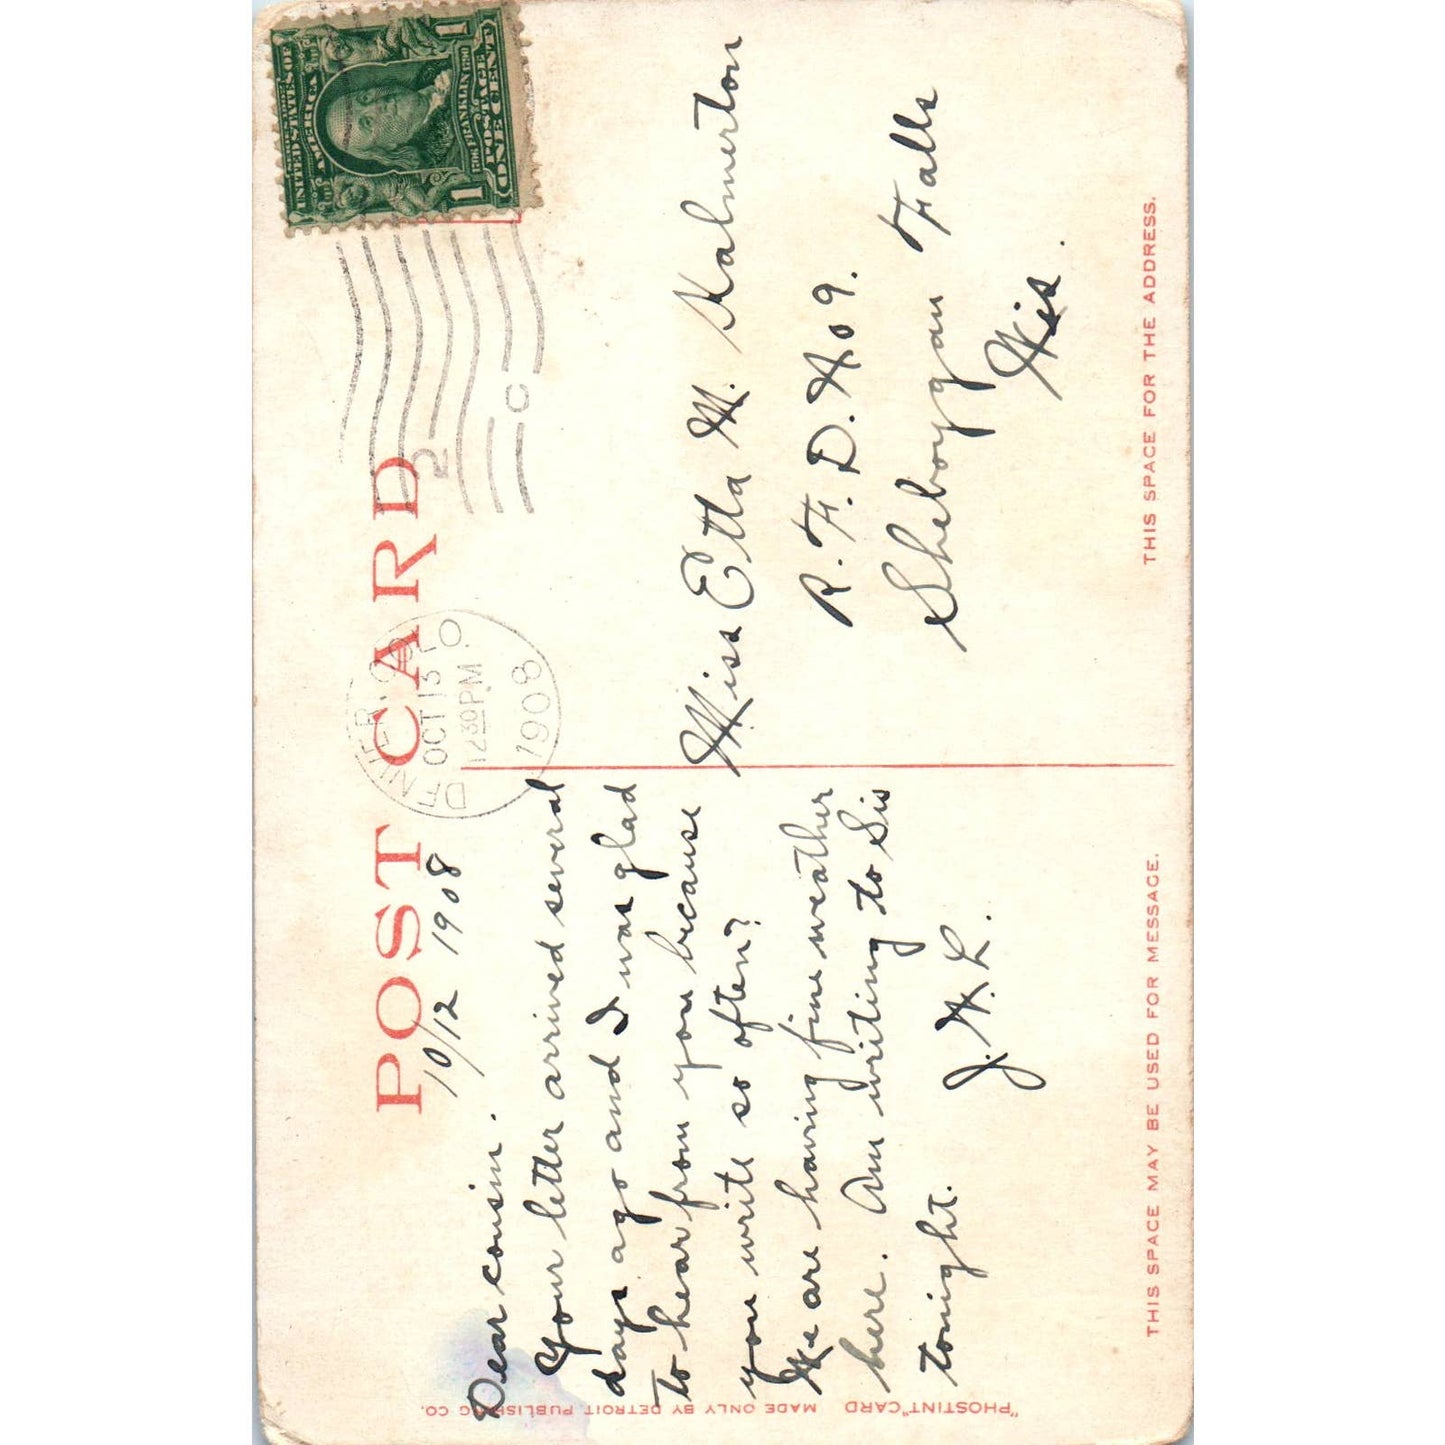 POST CARD
10/12 1908
DENVER, COLO
OCT 13
12 30 P.M.
1908
2
C
UNITED STATES OF
AMERICA
FRANKLIN
POSTAGE
1 ONE CENT 1
Dear cousin.
Your letter arrived several
days ago and I was glad
to hear from you because
you write so often?
We are having fine weather
here. Am writing to Sis
tonight.
J.H.L.
Miss Etta M. Kalmerton
R.F.D. No 9.
Sheboygan Falls
Wis.
THIS SPACE MAY BE USED FOR MESSAGE.
THIS SPACE FOR THE ADDRESS.
"PHOSTINT" CARD MADE ONLY BY DETROIT PUBLISHING CO.